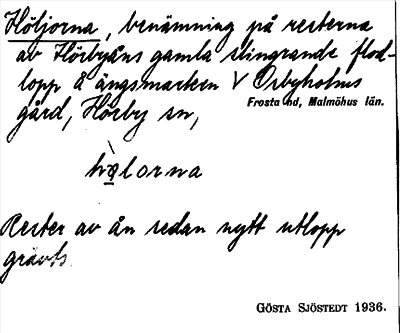 Höljorna, benämning på resterna
av Hörbyåns gamla slingrande flod-
lopp å ängsmarken V Osbyholms
gård, Hörby sn, Frosta hd, Malmöhus län.
hølorna
Rester av ån sedan nytt utlopp
grävts
GÖSTA SJÖSTEDT 1936.